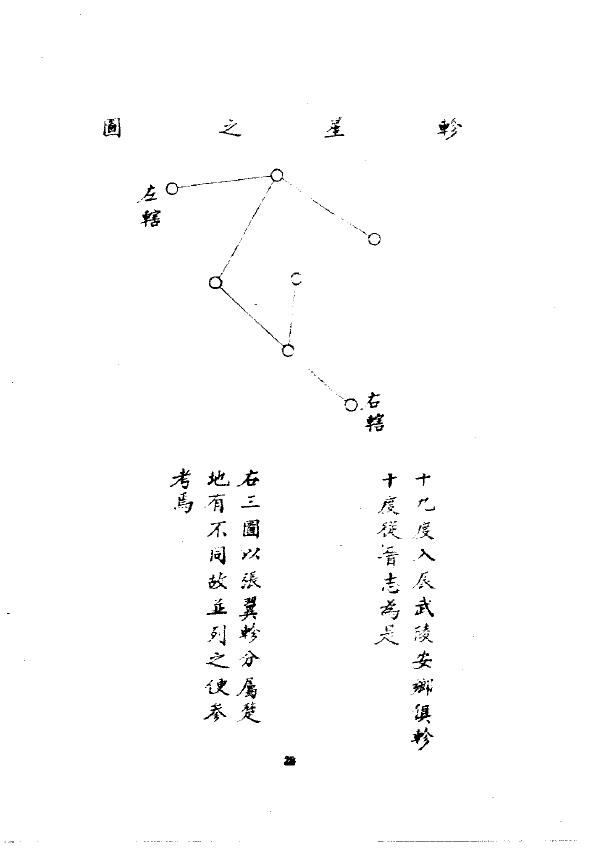 軫星之圖
左轄
右轄
十九度入辰武陵安鄉俱軫
十度從晋志為是
右三圖以張翼軫分屬楚
地有不同故並列之便参
考焉
28